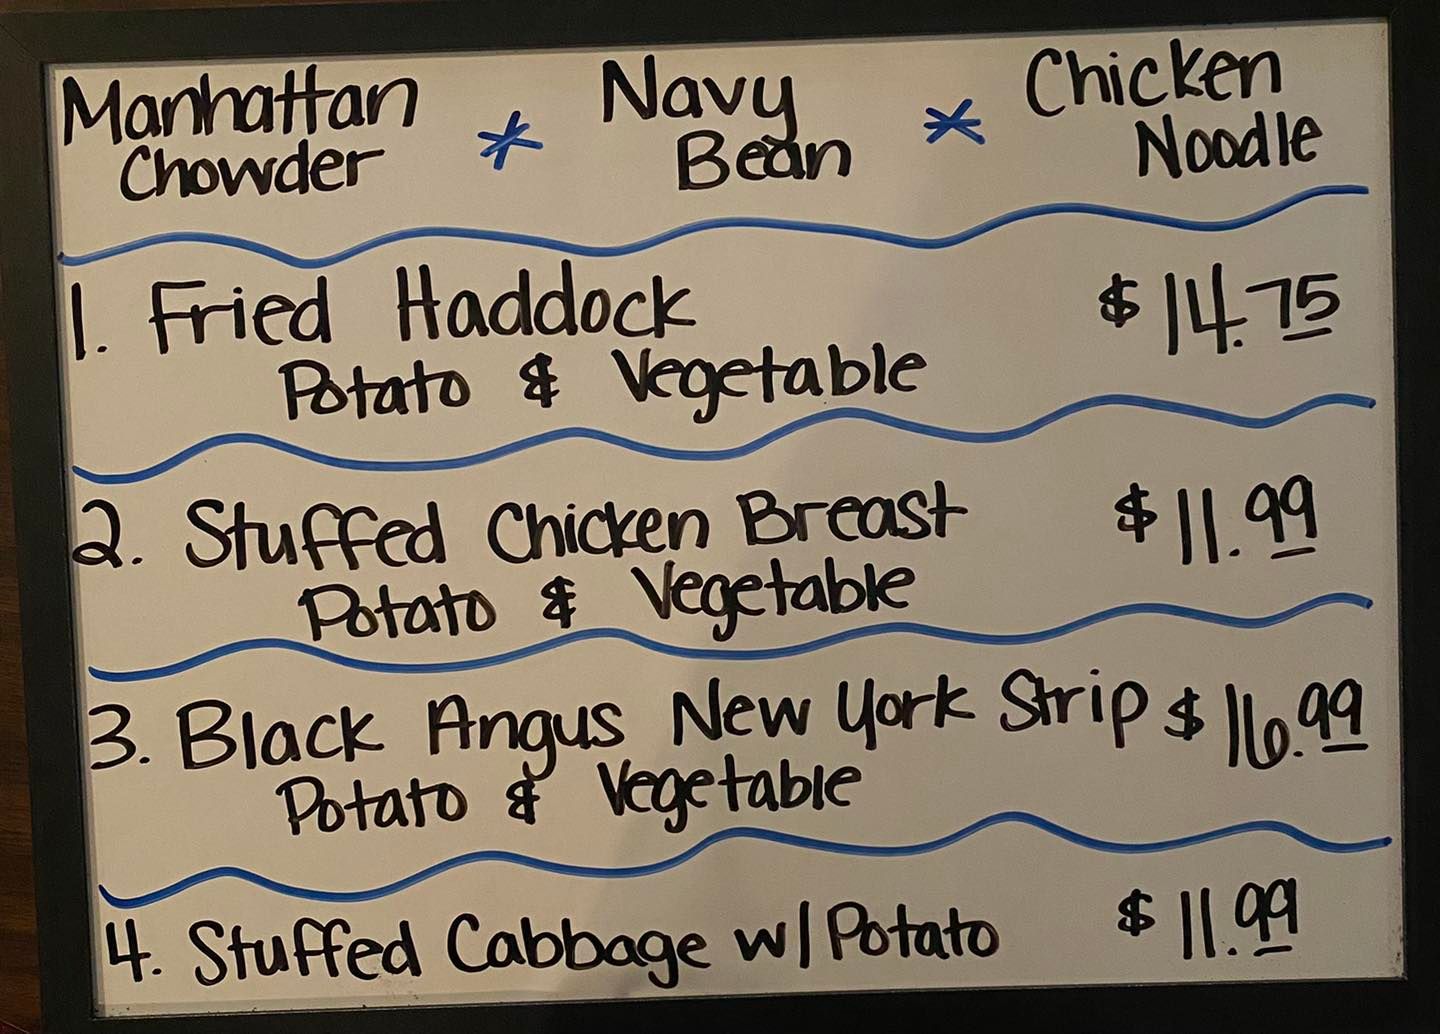 Manhattan Chowder * Navy Bean * Chicken Noodle
1. Fried Haddock $14.75
Potato & Vegetable
2. Stuffed Chicken Breast $11.99
Potato & Vegetable
3. Black Angus New York Strip $16.99
Potato & Vegetable
4. Stuffed Cabbage w/ Potato $11.99